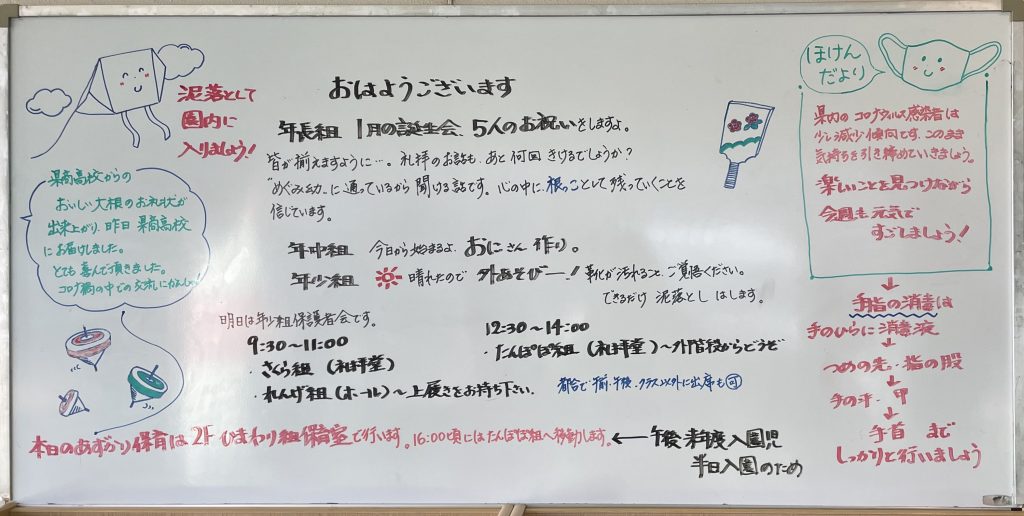 泥落として
園内に
入りましょう!
県商高校からの
おいしい大根のお礼状が
出来上がり、昨日 県商高校
にお届けしました。
とても喜んで頂きました。
コロナ禍の中での交流にかんしゃ!
おはようございます
年長組 1月の誕生会、5人のお祝いをしますよ。
皆が揃えますように…。礼拝のお話も、あと何回きけるでしょうか?
に通っているから聞ける話です。心の中に、根っことして残っていくことを
信じています。
年中組 今日から始まるよ、おにさん作り。
年少組 晴れたので 外あそびー! 靴が汚れること、ご覚悟ください。
できるだけ 泥落とし はします。
明日は年少組保護者会です。
9:30~11:00
・さくら組 (礼拝堂)
・れんげ組(ホール)~上履きをお持ち下さい。
12:30~14:00
・たんぽぽ組(礼拝堂)~外階段からどうぞ
都合で 午前・午後・クラス以外に出席も可
本日のあずかり保育は 2F ひまわり組保育室で行います。16:00頃にはたんぽぽ組へ移動します。
← 午後 来年度入園児
半日入園のため
ほけん
だより
県内のコロナウイルス感染者は
少し減少傾向です。このまま
気持ちを引き締めていきましょう。
楽しいことを見つけながら
今週も元気で
すごしましょう!
↓
手指の消毒は
手のひらに消毒液
↓
つめの先・指の股
↓
手の平・甲
↓
手首 まで
しっかりと行いましょう